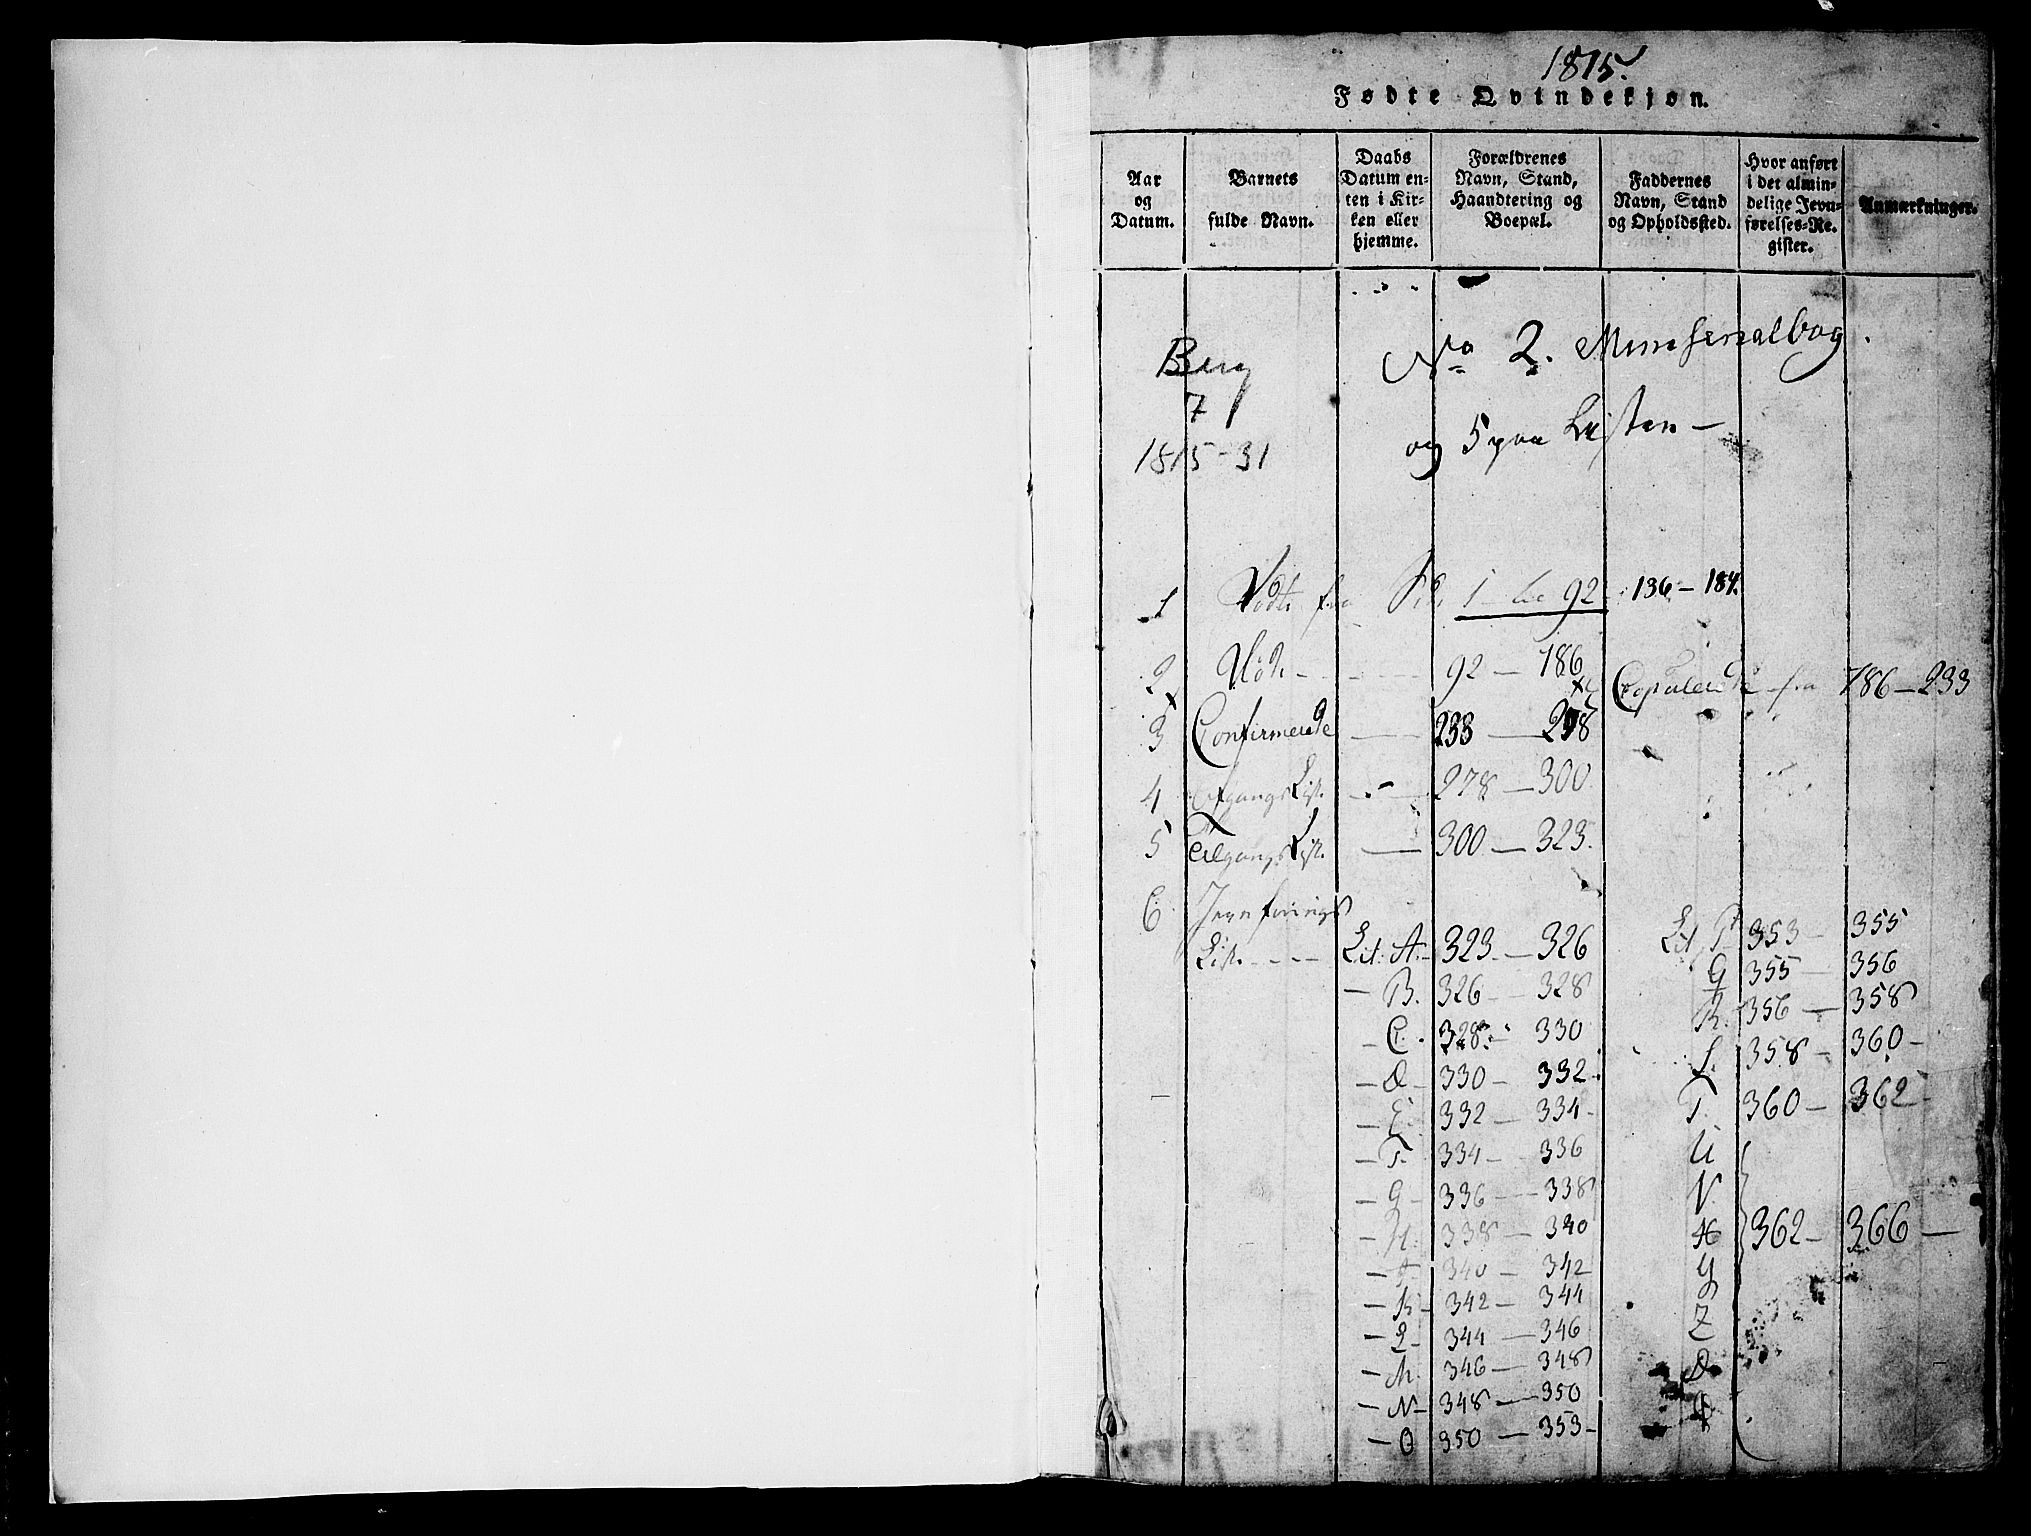 1815.
Fødte Qvindekjøn.
Aar og Datum.
Barnets fulde Navn.
Daabs Datum enten i Kirken eller hjemme.
Forældrenes Navn, Stand, Haandtering og Boepæl.
Faddernes Navn, Stand og Opholdssted.
Hvor anført i det almindelige Jevnførelses-Register.
Anmærkninger.
Berg No 2. Ministerialbog.
7
og 5 paa Listen –
1815-31
1 Fødte fra Pag. 1 – 92 136 – 184.
2 Døde - - - 92 – 186 Copulerede fra 186 – 233
3 Confirmerede – 233 – 278
4 Afgangs List. – 278 – 300
5 Tilgangs List. – 300 – 323.
6 Jevnførings
List. - - - Lit. A. 323. – 326 Lit. P. 353 – 355
– B. 326 – 328 Q 355 – 356
– C. 328 – 330 R. 356 – 358
– D – 330 – 332. S. 358 – 360 –
– E. 332 – 334 T. 360 – 362 –
– F. 334 – 336 U
– G – 336 – 338 V
– H. 338 – 340 X 362 – 366 –
– I – 340 – 342 Y
– K – 342 – 344 Z
– L – 344 – 346 Æ
– M. 346 – 348 Ø
– N – 348 – 350
– O 350 – 353 –